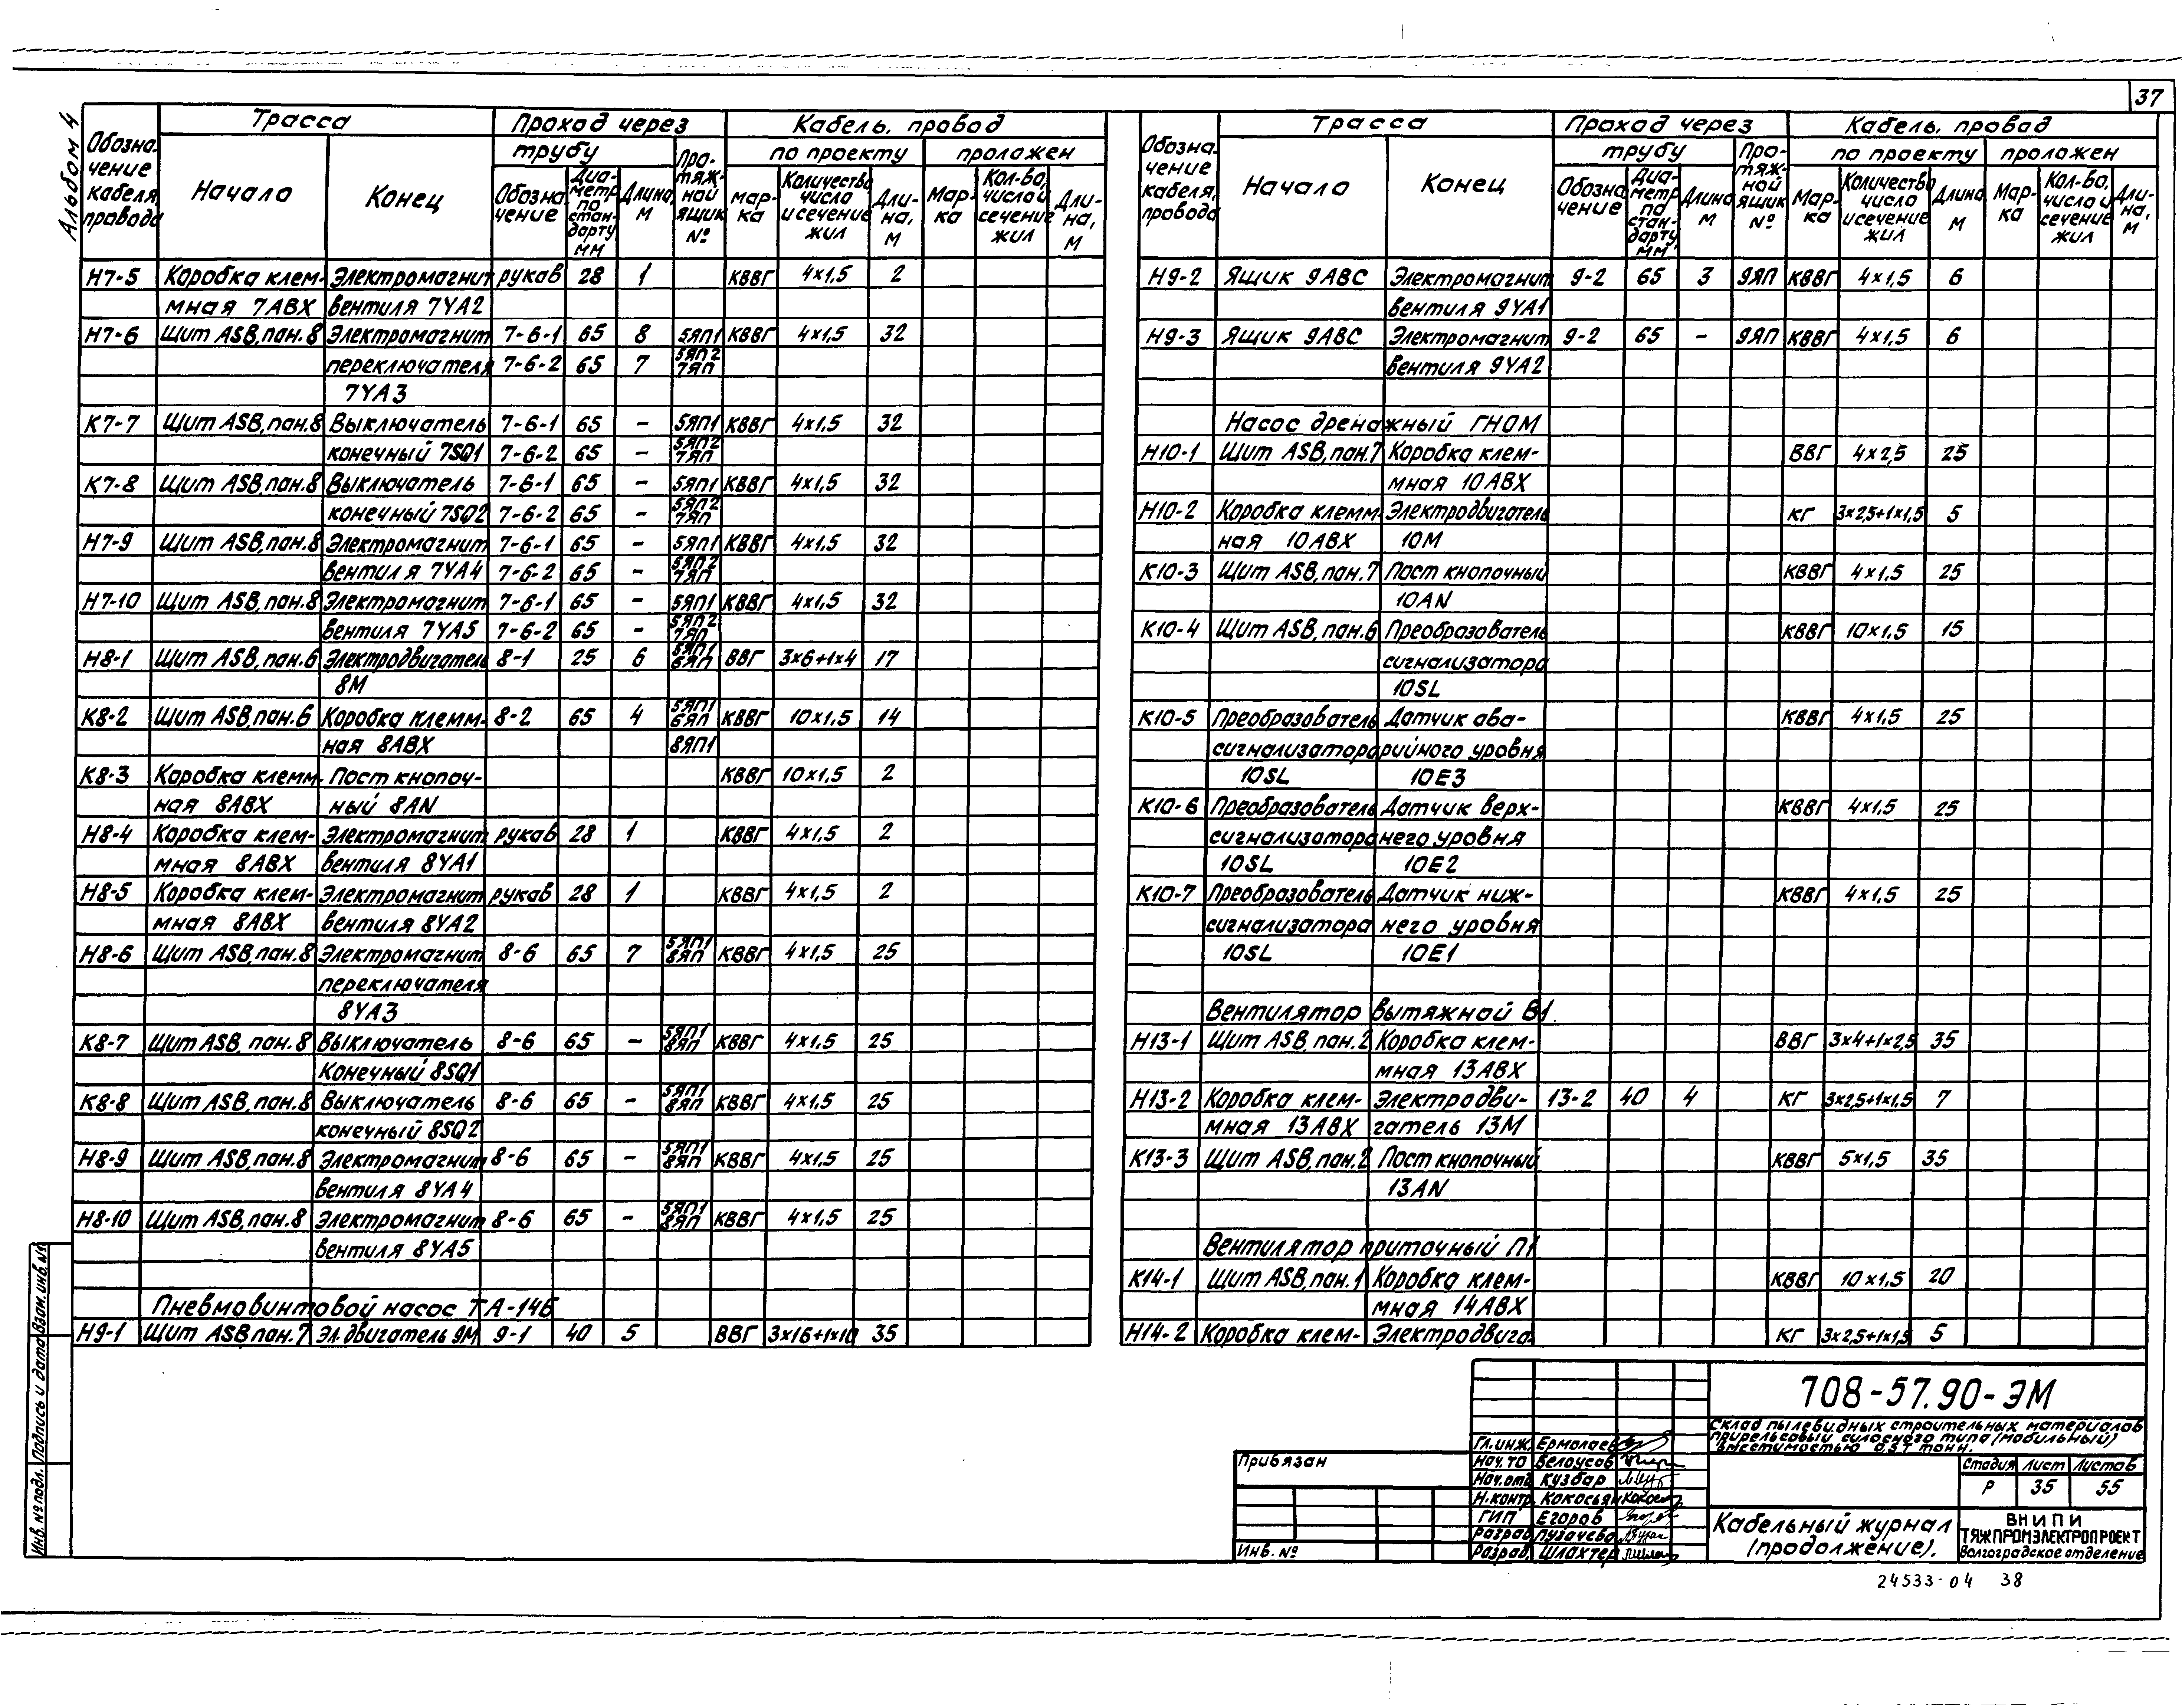 37
Альбом 4
Обозначение кабеля, провода | Трасса | Проход через | Кабель, провод
трубу | Протяжной ящик № | по проекту | проложен
Начало | Конец | Обозначение | Диаметр по стандарту мм | Длина, м | Марка | Количество, число и сечение жил | Длина, м | Марка | Кол-во, число и сечение жил | Длина, м
Н7-5 Коробка клем- Электромагнит рукав 28 1 КВВГ 4×1,5 2
мная 7АВХ вентиля 7YA2
Н7-6 Щит ASB, пан.8 Электромагнит 7-6-1 65 8 5ЯП1 КВВГ 4×1,5 32
переключателя 7-6-2 65 7 5ЯП2 7ЯП
7YA3
К7-7 Щит ASB, пан.8 Выключатель 7-6-1 65 - 5ЯП1 КВВГ 4×1,5 32
конечный 7SQ1 7-6-2 65 - 5ЯП2 7ЯП
К7-8 Щит ASB, пан.8 Выключатель 7-6-1 65 - 5ЯП1 КВВГ 4×1,5 32
конечный 7SQ2 7-6-2 65 - 5ЯП2 7ЯП
Н7-9 Щит ASB, пан.8 Электромагнит 7-6-1 65 - 5ЯП1 КВВГ 4×1,5 32
вентиля 7YA4 7-6-2 65 - 5ЯП2 7ЯП
Н7-10 Щит ASB, пан.8 Электромагнит 7-6-1 65 - 5ЯП1 КВВГ 4×1,5 32
вентиля 7YA5 7-6-2 65 - 5ЯП2 7ЯП
Н8-1 Щит ASB, пан.6 Электродвигатель 8-1 25 6 5ЯП1 6ЯП ВВГ 3×6+1×4 17
8М
К8-2 Щит ASB, пан.6 Коробка клемм- 8-2 65 4 5ЯП1 6ЯП КВВГ 10×1,5 14
ная 8АВХ 8ЯП1
К8-3 Коробка клемм- Пост кнопоч- КВВГ 10×1,5 2
ная 8АВХ ный 8AN
Н8-4 Коробка клем- Электромагнит рукав 28 1 КВВГ 4×1,5 2
мная 8АВХ вентиля 8YA1
Н8-5 Коробка клем- Электромагнит рукав 28 1 КВВГ 4×1,5 2
мная 8АВХ вентиля 8YA2
Н8-6 Щит ASB, пан.8 Электромагнит 8-6 65 7 5ЯП1 8ЯП КВВГ 4×1,5 25
переключателя
8YA3
К8-7 Щит ASB, пан.8 Выключатель 8-6 65 - 5ЯП1 8ЯП КВВГ 4×1,5 25
Конечный 8SQ1
К8-8 Щит ASB, пан.8 Выключатель 8-6 65 - 5ЯП1 8ЯП КВВГ 4×1,5 25
конечный 8SQ2
Н8-9 Щит ASB, пан.8 Электромагнит 8-6 65 - 5ЯП1 8ЯП КВВГ 4×1,5 25
вентиля 8YA4
Н8-10 Щит ASB, пан.8 Электромагнит 8-6 65 - 5ЯП1 8ЯП КВВГ 4×1,5 25
вентиля 8YA5
Пневмовинтовой насос ТА-14Б
Н9-1 Щит ASB, пан.7 Эл.двигатель 9М 9-1 40 5 ВВГ 3×16+1×10 35
Обозначение кабеля, провода | Трасса | Проход через | Кабель, провод
трубу | Протяжной ящик № | по проекту | проложен
Начало | Конец | Обозначение | Диаметр по стандарту, мм | Длина м | Марка | Количество число и сечение жил | Длина, м | Марка | Кол-во, число и сечение жил | Длина, м
Н9-2 Ящик 9АВС Электромагнит 9-2 65 3 9ЯП КВВГ 4×1,5 6
вентиля 9YA1
Н9-3 Ящик 9АВС Электромагнит 9-2 65 - 9ЯП КВВГ 4×1,5 6
вентиля 9YA2
Насос дренажный ГНОМ
Н10-1 Щит ASB, пан.7 Коробка клем- ВВГ 4×2,5 25
мная 10АВХ
Н10-2 Коробка клемм- Электродвигатель КГ 3×2,5+1×1,5 5
ная 10АВХ 10М
К10-3 Щит ASB, пан.7 Пост кнопочный КВВГ 4×1,5 25
10AN
К10-4 Щит ASB, пан.6 Преобразователь КВВГ 10×1,5 15
сигнализатора
10SL
К10-5 Преобразователь Датчик ава- КВВГ 4×1,5 25
сигнализатора рийного уровня
10SL 10Е3
К10-6 Преобразователь Датчик верх- КВВГ 4×1,5 25
сигнализатора него уровня
10SL 10Е2
К10-7 Преобразователь Датчик ниж- КВВГ 4×1,5 25
сигнализатора него уровня
10SL 10Е1
Вентилятор вытяжной В1.
Н13-1 Щит ASB, пан.2 Коробка клем- ВВГ 3×4+1×2,5 35
мная 13АВХ
Н13-2 Коробка клем- Электродви- 13-2 40 4 КГ 3×2,5+1×1,5 7
мная 13АВХ гатель 13М
К13-3 Щит ASB, пан.2 Пост кнопочный КВВГ 5×1,5 35
13AN
Вентилятор приточный П1
К14-1 Щит ASB, пан.1 Коробка клем- КВВГ 10×1,5 20
мная 14АВХ
Н14-2 Коробка клем- Электродвига- КГ 3×2,5+1×1,5 5
Инв. № подл. Подпись и дата Взам. инв. №
Привязан
Инв. №
708-57.90-ЭМ
Склад пылевидных строительных материалов
прирельсовый силосного типа (мобильный)
вместимостью 0,5 т тонн.
Гл.инж. Ермолаев
Нач.ТО Белоусов
Нач.отд. Кузбар
Н.контр. Кокосьян
ГИП Егоров
Разраб. Пугачева
Разраб. Шлахтер
Стадия Лист Листов
Р 35 55
Кабельный журнал
(продолжение).
ВНИПИ
ТЯЖПРОМЭЛЕКТРОПРОЕКТ
Волгоградское отделение
24533-04 38